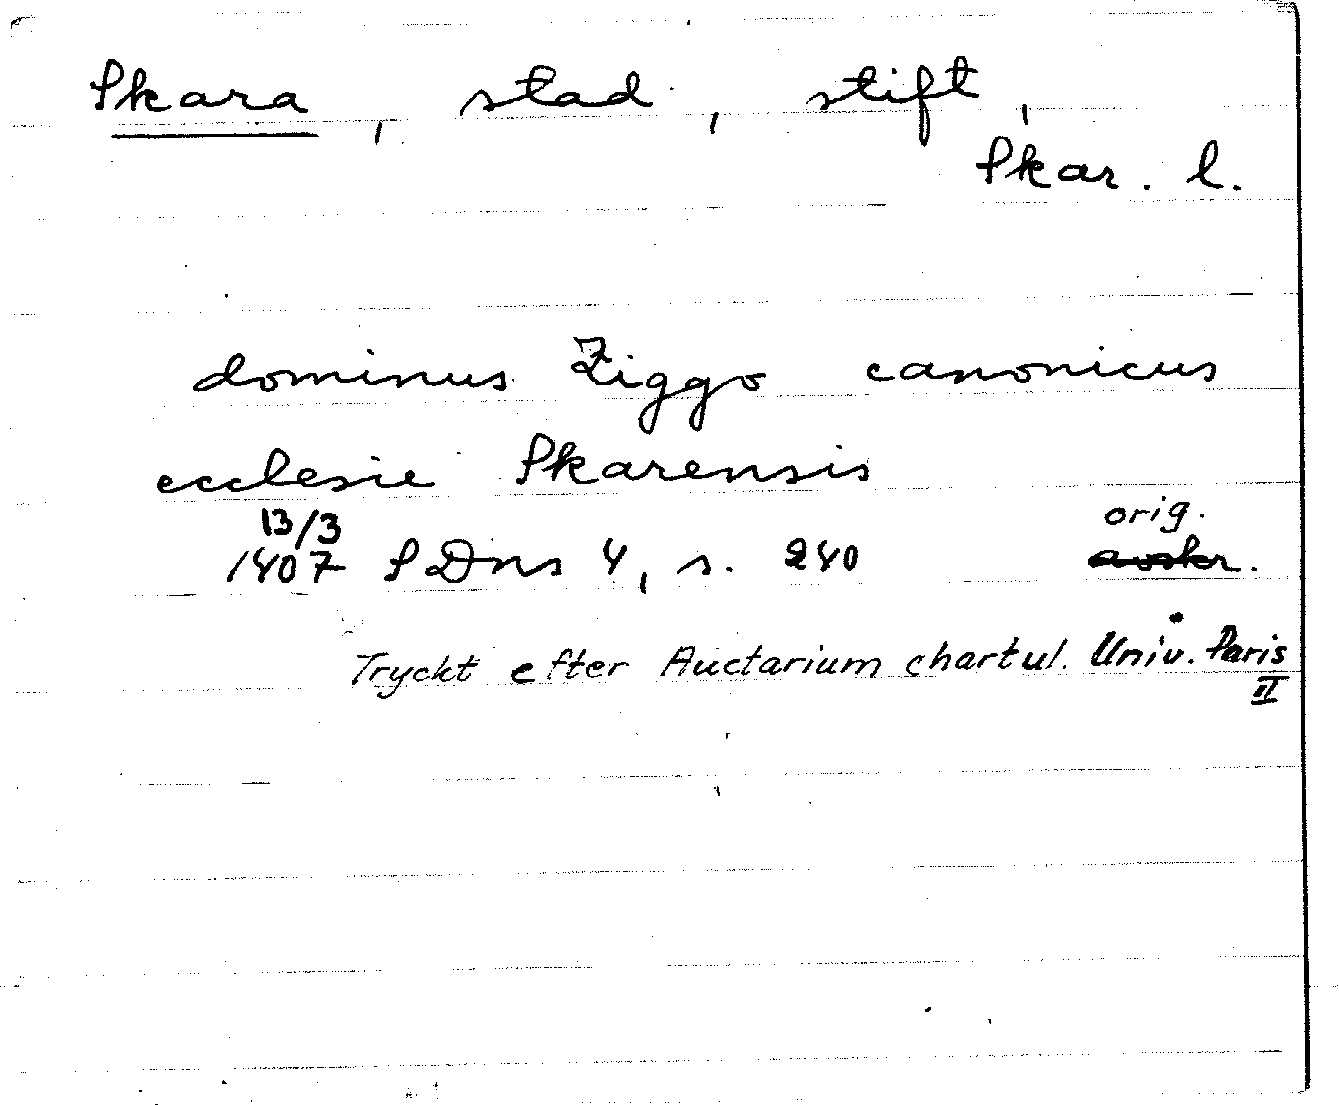 Skara, stad, stift,
Skar. l.
dominus Ziggo canonicus
ecclesie Skarensis
13/3 orig.
1407 SDns 4, s. 240 avskr.
Tryckt efter Auctarium chartul. Univ. Paris
II